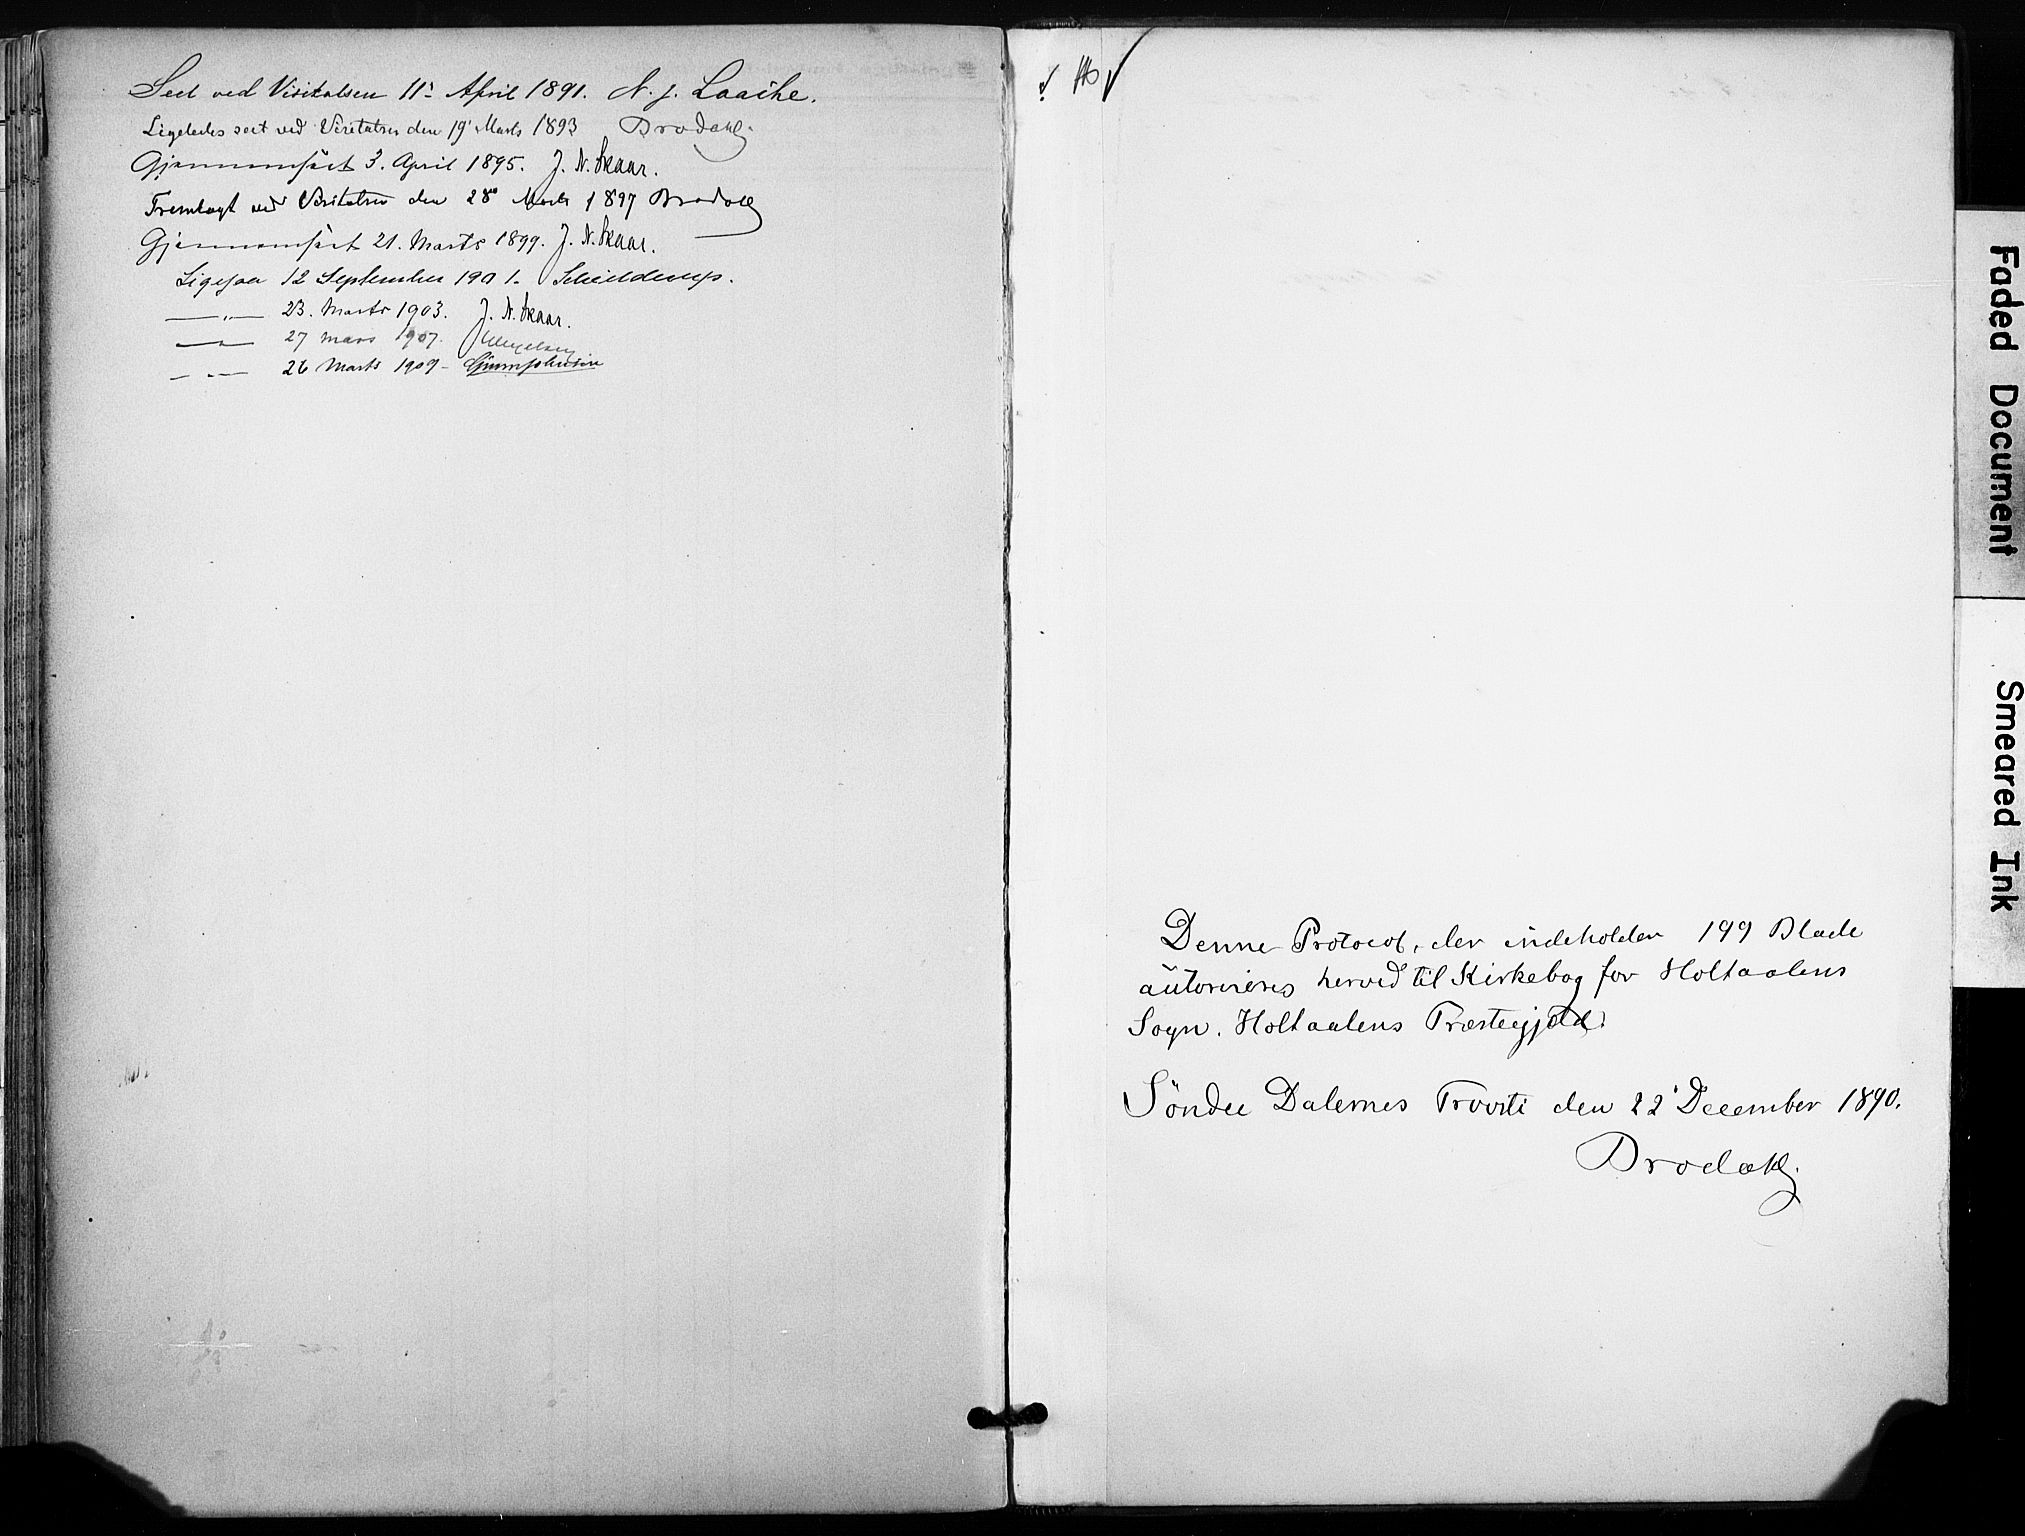 Seet ved Visitatsen 11' April 1891. N. J. Laache.
Ligeledes seet ved Visitatsen den 19' Marts 1893 Brodahl.
Gjennemseet 3. April 1895. J. N. Skaar.
Fremlagt ved Visitatsen den 28' Marts 1897 Brodahl
Gjennemseet 21. Marts 1899. J. N. Skaar.
Ligesaa 12 September 1901. Schielderup.
—〃— 23. Marts 1903. J. N. Skaar.
—〃— 27 mars 1907.
—〃— 26 Marts 1909 -
Denne Protocol, der indeholder 199 Blade
autoriseres herved til Kirkebog for Holtaalens
Sogn. Holtaalens Præstegjeld.
Söndre Dalernes Provsti den 22' December 1890.
Brodahl.
Faded Document
Smeared Ink